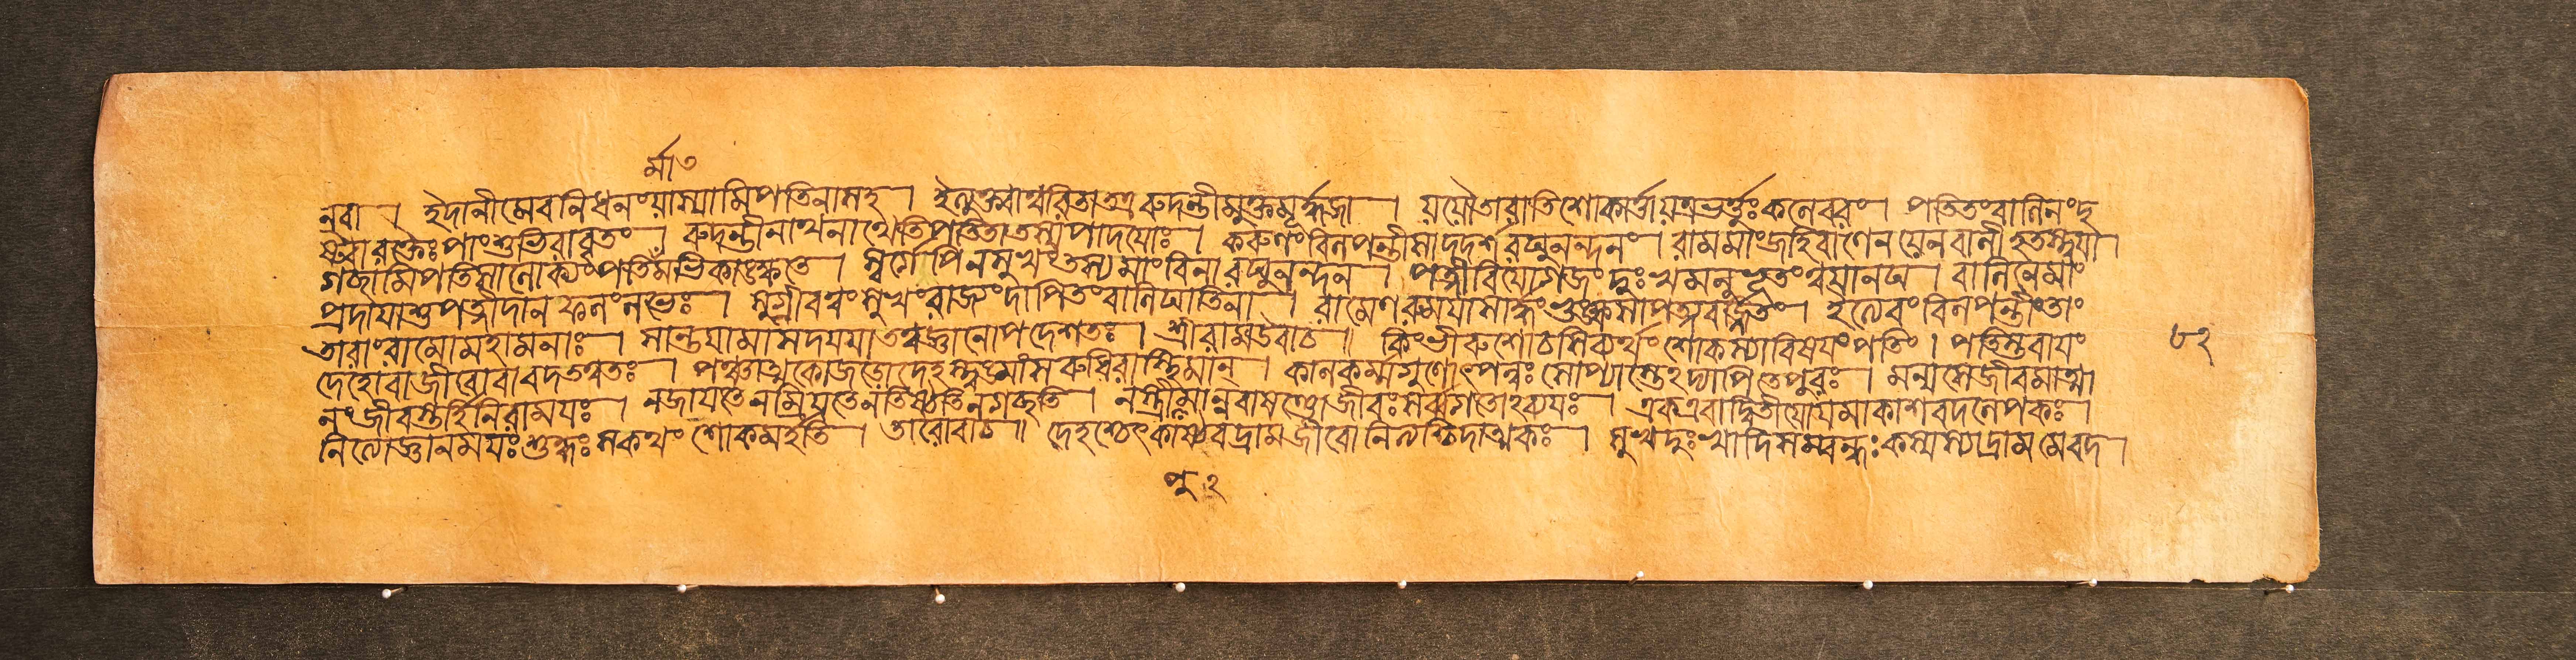 র্মা৩
নবা । ইদানীমেবনিধনংযাস্যামিপতিনাসহ । ইত্যুক্ত্বাত্বরিতাতত্ররুদন্তীমুক্তমূর্দ্ধজা । যযৌতারাতিশোকার্ত্তাযত্রভর্ত্তুঃকলেবরং । পতিতংবালিনংদৃ
ষ্ট্বারক্তৈঃপাংশুভিরাবৃতং । রুদন্তীনাথনাথেতিপতিতাতস্যপাদযোঃ । করুণংবিলপন্তীসাদদর্শরঘুনন্দনং । রামমাংজহিবাণেনযেনবালীহতস্ত্বযা ।
গচ্ছামিপতিসালোক্যংপতির্মভিকাঙ্ক্ষতে । স্বর্গেপিনসুখংতস্যমাংবিনারঘুনন্দন । পত্নীবিযোগজংদুঃখমনুভূতংত্বযানঘ । বালিনেমাং
প্রদাযাশুপত্নীদানফলংলভেঃ । সুগ্রীবত্বংসুখংরাজ্যংদাপিতংবালিঘাতিনা । রামেণরুমযাসার্দ্ধংভুঙ্ক্ষ্বসাপত্নবর্জ্জিতং । ইত্যেবংবিলপন্তীংতাং
তারাংরামোমহামনাঃ । সান্ত্বযামাসদযযাতত্বজ্ঞানোপদেশতঃ । শ্রীরামউবাচ ॥ কিংভীরুশোচসিব্যর্থংশোকস্যাবিষযংপতিং । পতিস্তবাযং
দেহোবাজীবোবাবদতত্বতঃ । পঞ্চাত্মকোজডোদেহস্ত্বঙ্মাংসরুধিরাস্থিমান্ । কালকর্ম্মগুণোৎপন্নঃসোপ্যাস্তেঽদ্যাপিতেপুরঃ । মন্যসেজীবমাত্মা
নংজীবস্তর্হিনিরামযঃ । নজাযতেনম্রিযতেনতিষ্ঠতিনগচ্ছতি । নস্ত্রীপুমান্নবাষণ্ঢোজীবঃসর্ব্বগতোঽব্যযঃ । একএবাদ্বিতীযোযমাকাশবদলেপকঃ ।
নিত্যোজ্ঞানমযঃশুদ্ধঃসকথংশোকমর্হতি । তারোবাচ ॥ দেহশ্চেৎকাষ্ঠবদ্রামজীবোনিত্যশ্চিদাত্মকঃ । সুখদুঃখাদিসম্বন্ধঃকস্যস্যাদ্রামমেবদ ।
৮২
পু ২